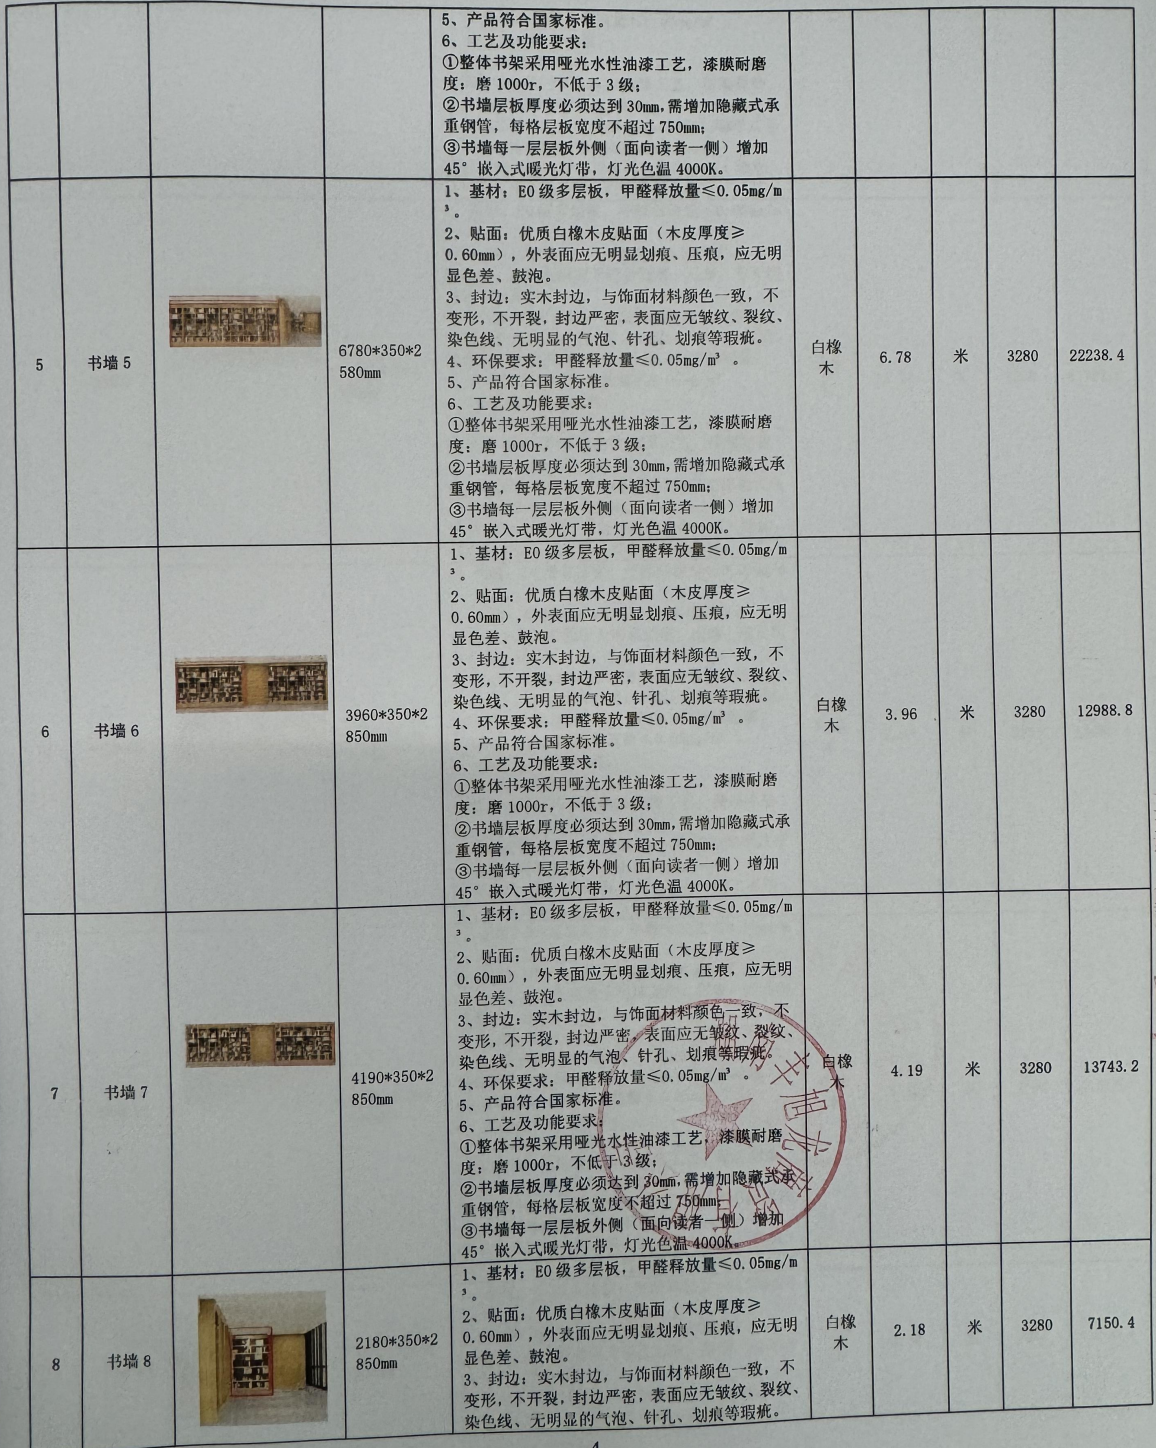 5、产品符合国家标准。
6、工艺及功能要求：
①整体书架采用哑光水性油漆工艺，漆膜耐磨
度：磨 1000r，不低于 3 级；
②书墙层板厚度必须达到 30mm,需增加隐藏式承
重钢管，每格层板宽度不超过 750mm;
③书墙每一层层板外侧（面向读者一侧）增加
45° 嵌入式暖光灯带，灯光色温 4000K。
5
书墙 5
6780*350*2
580mm
1、基材：E0 级多层板，甲醛释放量≤0.05mg/m
³ 。
2、贴面：优质白橡木皮贴面（木皮厚度≥
0.60mm），外表面应无明显划痕、压痕，应无明
显色差、鼓泡。
3、封边：实木封边，与饰面材料颜色一致，不
变形，不开裂，封边严密，表面应无皱纹、裂纹、
染色线、无明显的气泡、针孔、划痕等瑕疵。
4、环保要求：甲醛释放量≤0.05mg/m³ 。
5、产品符合国家标准。
6、工艺及功能要求：
①整体书架采用哑光水性油漆工艺，漆膜耐磨
度：磨 1000r，不低于 3 级；
②书墙层板厚度必须达到 30mm,需增加隐藏式承
重钢管，每格层板宽度不超过 750mm;
③书墙每一层层板外侧（面向读者一侧）增加
45° 嵌入式暖光灯带，灯光色温 4000K。
白橡
木
6.78
米
3280
22238.4
6
书墙 6
3960*350*2
850mm
1、基材：E0 级多层板，甲醛释放量≤0.05mg/m
³ 。
2、贴面：优质白橡木皮贴面（木皮厚度≥
0.60mm），外表面应无明显划痕、压痕，应无明
显色差、鼓泡。
3、封边：实木封边，与饰面材料颜色一致，不
变形，不开裂，封边严密，表面应无皱纹、裂纹、
染色线、无明显的气泡、针孔、划痕等瑕疵。
4、环保要求：甲醛释放量≤0.05mg/m³ 。
5、产品符合国家标准。
6、工艺及功能要求：
①整体书架采用哑光水性油漆工艺，漆膜耐磨
度：磨 1000r，不低于 3 级；
②书墙层板厚度必须达到 30mm,需增加隐藏式承
重钢管，每格层板宽度不超过 750mm;
③书墙每一层层板外侧（面向读者一侧）增加
45° 嵌入式暖光灯带，灯光色温 4000K。
白橡
木
3.96
米
3280
12988.8
7
书墙 7
4190*350*2
850mm
1、基材：E0 级多层板，甲醛释放量≤0.05mg/m
³ 。
2、贴面：优质白橡木皮贴面（木皮厚度≥
0.60mm），外表面应无明显划痕、压痕，应无明
显色差、鼓泡。
3、封边：实木封边，与饰面材料颜色一致，不
变形，不开裂，封边严密，表面应无皱纹、裂纹、
染色线、无明显的气泡、针孔、划痕等瑕疵。
4、环保要求：甲醛释放量≤0.05mg/m³ 。
5、产品符合国家标准。
6、工艺及功能要求：
①整体书架采用哑光水性油漆工艺，漆膜耐磨
度：磨 1000r，不低于 3 级；
②书墙层板厚度必须达到 30mm,需增加隐藏式承
重钢管，每格层板宽度不超过 750mm;
③书墙每一层层板外侧（面向读者一侧）增加
45° 嵌入式暖光灯带，灯光色温 4000K。
白橡
木
4.19
米
3280
13743.2
8
书墙 8
2180*350*2
850mm
1、基材：E0 级多层板，甲醛释放量≤0.05mg/m
³ 。
2、贴面：优质白橡木皮贴面（木皮厚度≥
0.60mm），外表面应无明显划痕、压痕，应无明
显色差、鼓泡。
3、封边：实木封边，与饰面材料颜色一致，不
变形，不开裂，封边严密，表面应无皱纹、裂纹、
染色线、无明显的气泡、针孔、划痕等瑕疵。
白橡
木
2.18
米
3280
7150.4